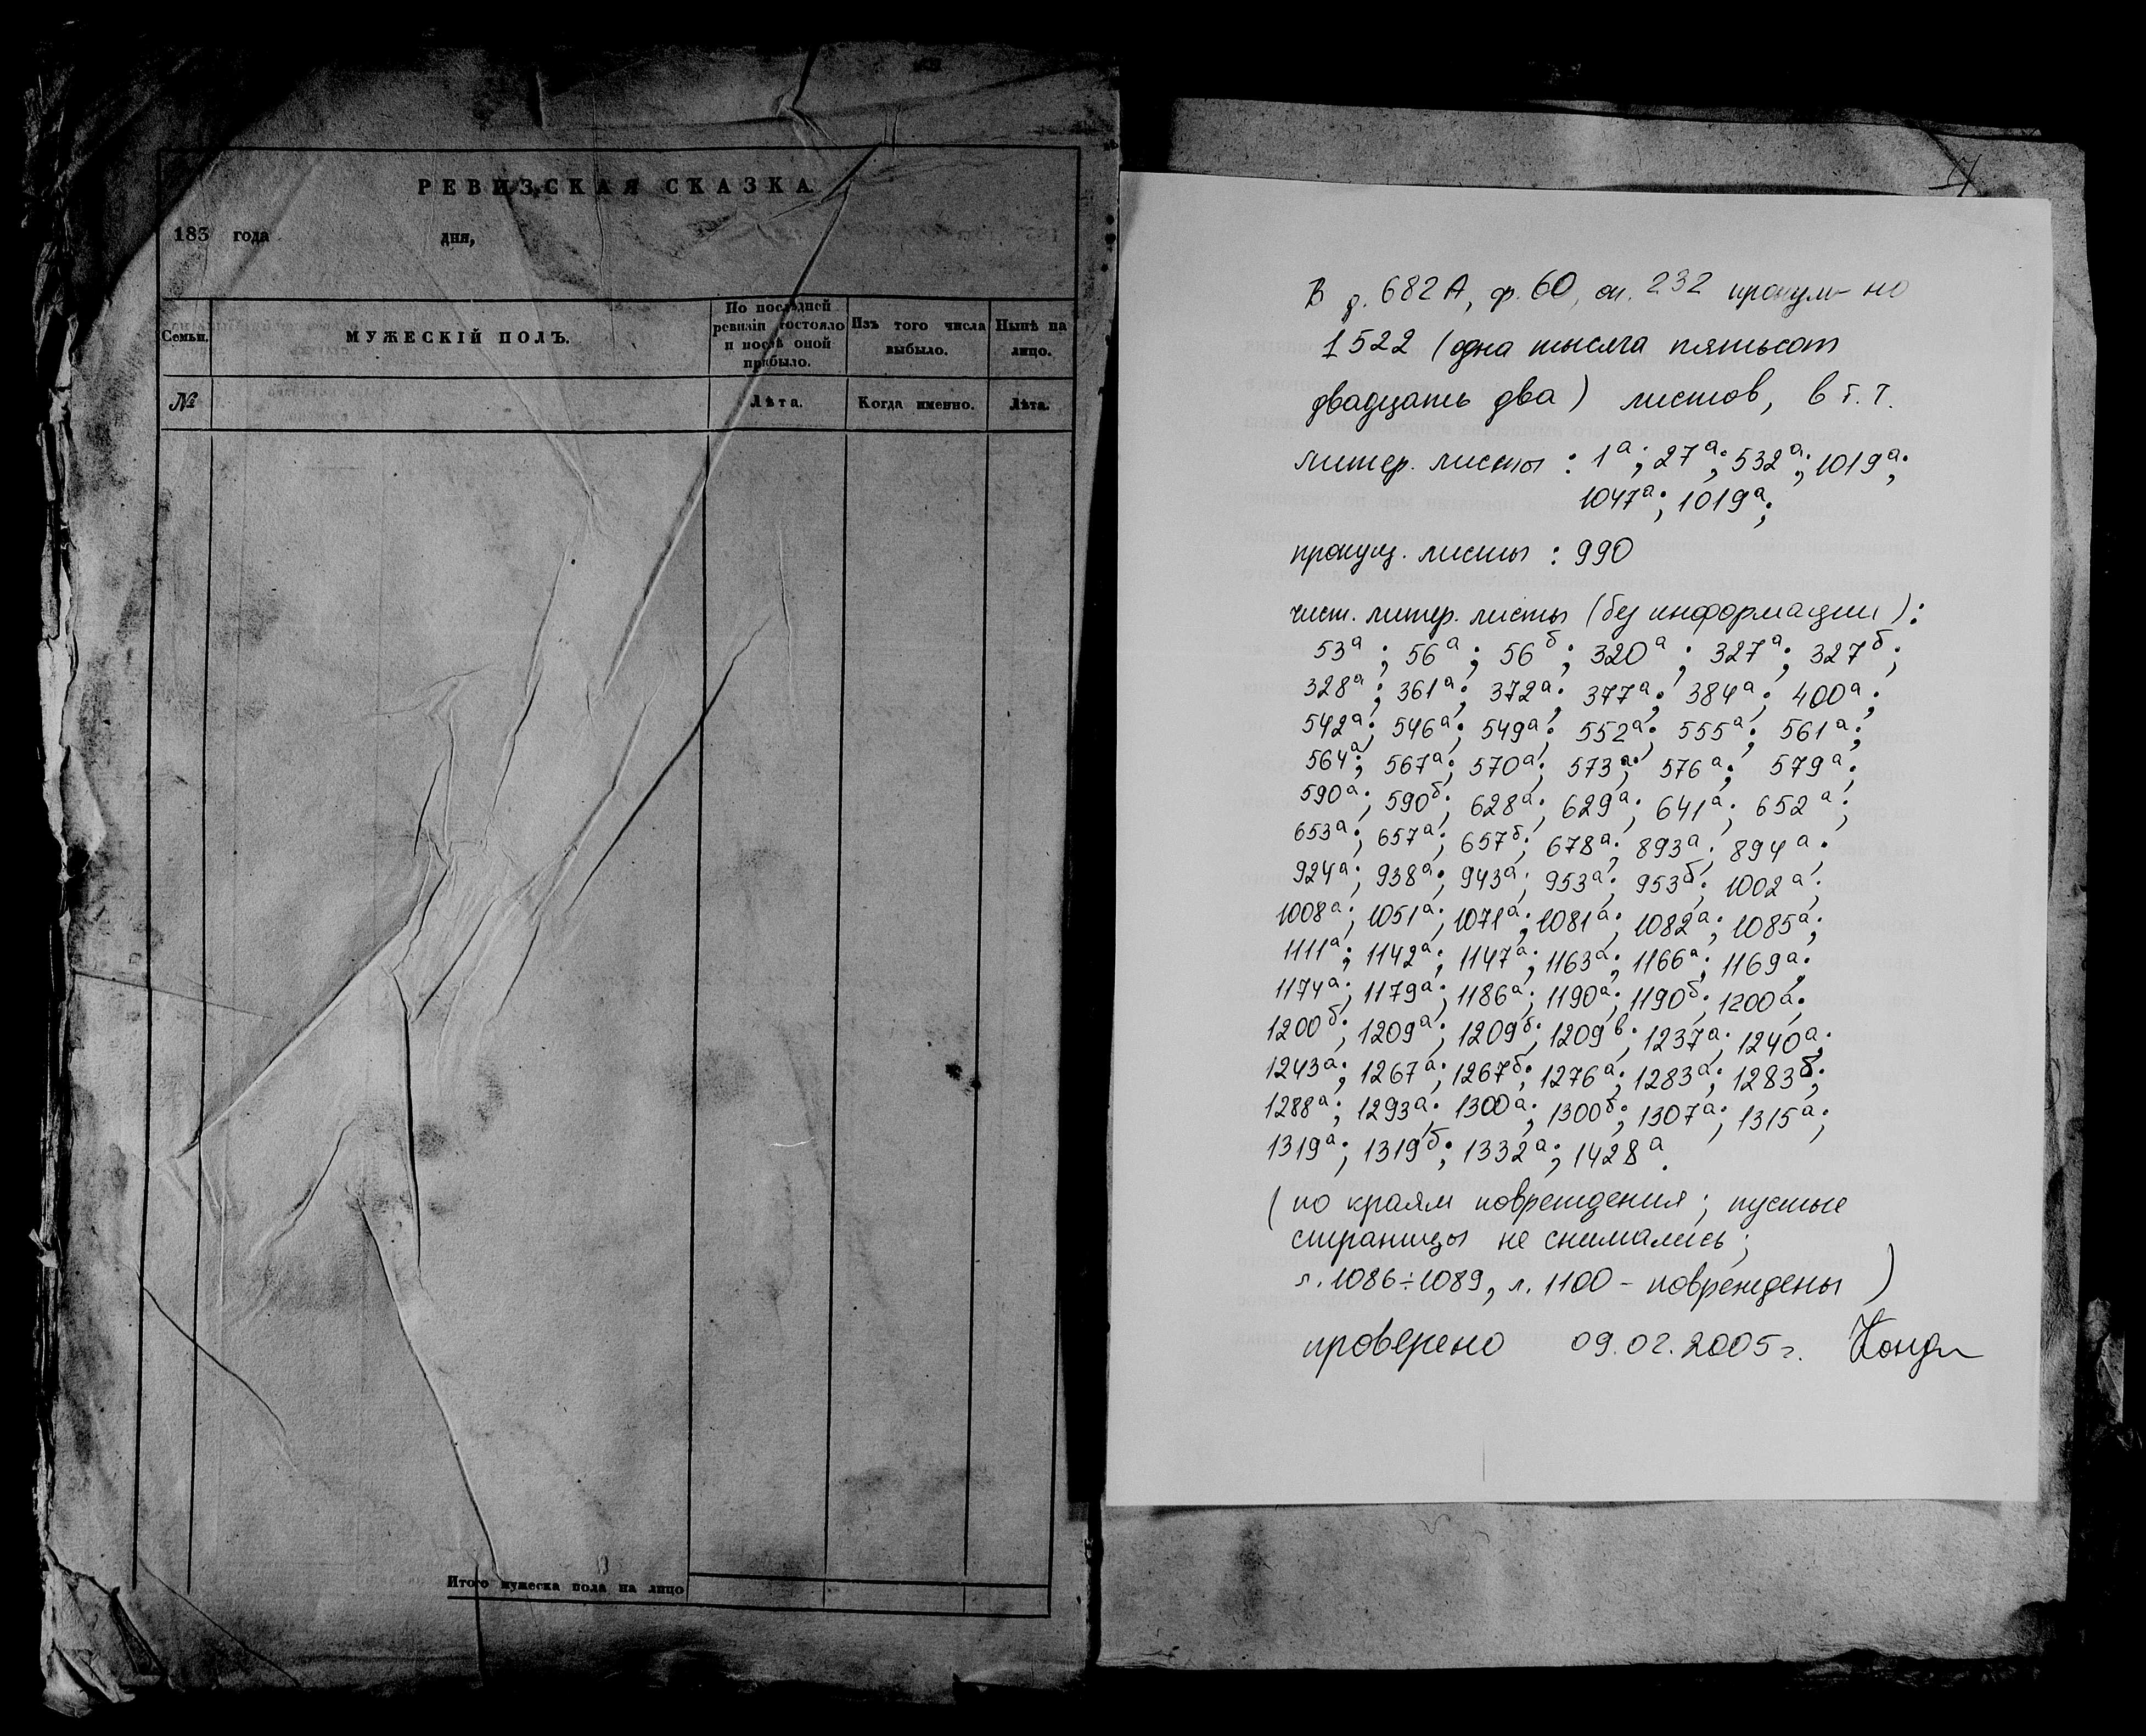 РЕВИЗСКАЯ СКАЗКА
183 года дня,
Семьи.
МУЖЕСКІЙ ПОЛЪ.
По последней
ревизіи состояло
и послѣ оной
прибыло.
Изъ того числа
выбыло.
Нынѣ на
лицо.
№
Лѣта.
Когда именно.
Лѣта.
Итого мужеска пола на лицо
В д. 682А, ф. 60, оп. 232 пронум-но
1522 (одна тысяча пятьсот
двадцать два) листов, в т. ч.
литер. листы : 1а; 27а; 532а; 1019а;
1047а; 1019а;
пропущ. листы : 990
чист. литер. листы (без информации):
53а; 56а; 56б; 320а; 327а; 327б;
328а; 361а; 372а; 377а; 384а; 400а;
542а; 546а; 549а; 552а; 555а; 561а;
564а; 567а; 570а; 573а; 576а; 579а;
590а; 590б; 628а; 629а; 641а; 652а;
653а; 657а; 657б; 678а; 893а; 894а;
924а; 938а; 943а; 953а; 953б; 1002а;
1008а; 1051а; 1071а; 1081а; 1082а; 1085а;
1111а; 1142а; 1147а; 1163а; 1166а; 1169а;
1174а; 1179а; 1186а; 1190а; 1190б; 1200а;
1200б; 1209а; 1209б; 1209в; 1237а; 1240а;
1243а; 1267а; 1267б; 1276а; 1283а; 1283б;
1288а; 1293а; 1300а; 1300б; 1307а; 1315а;
1319а; 1319б; 1332а; 1428а.
(по краям повреждения; пустые
страницы не снимались;
л. 1086÷1089, л. 1100 - повреждены)
проверено 09.02.2005г.